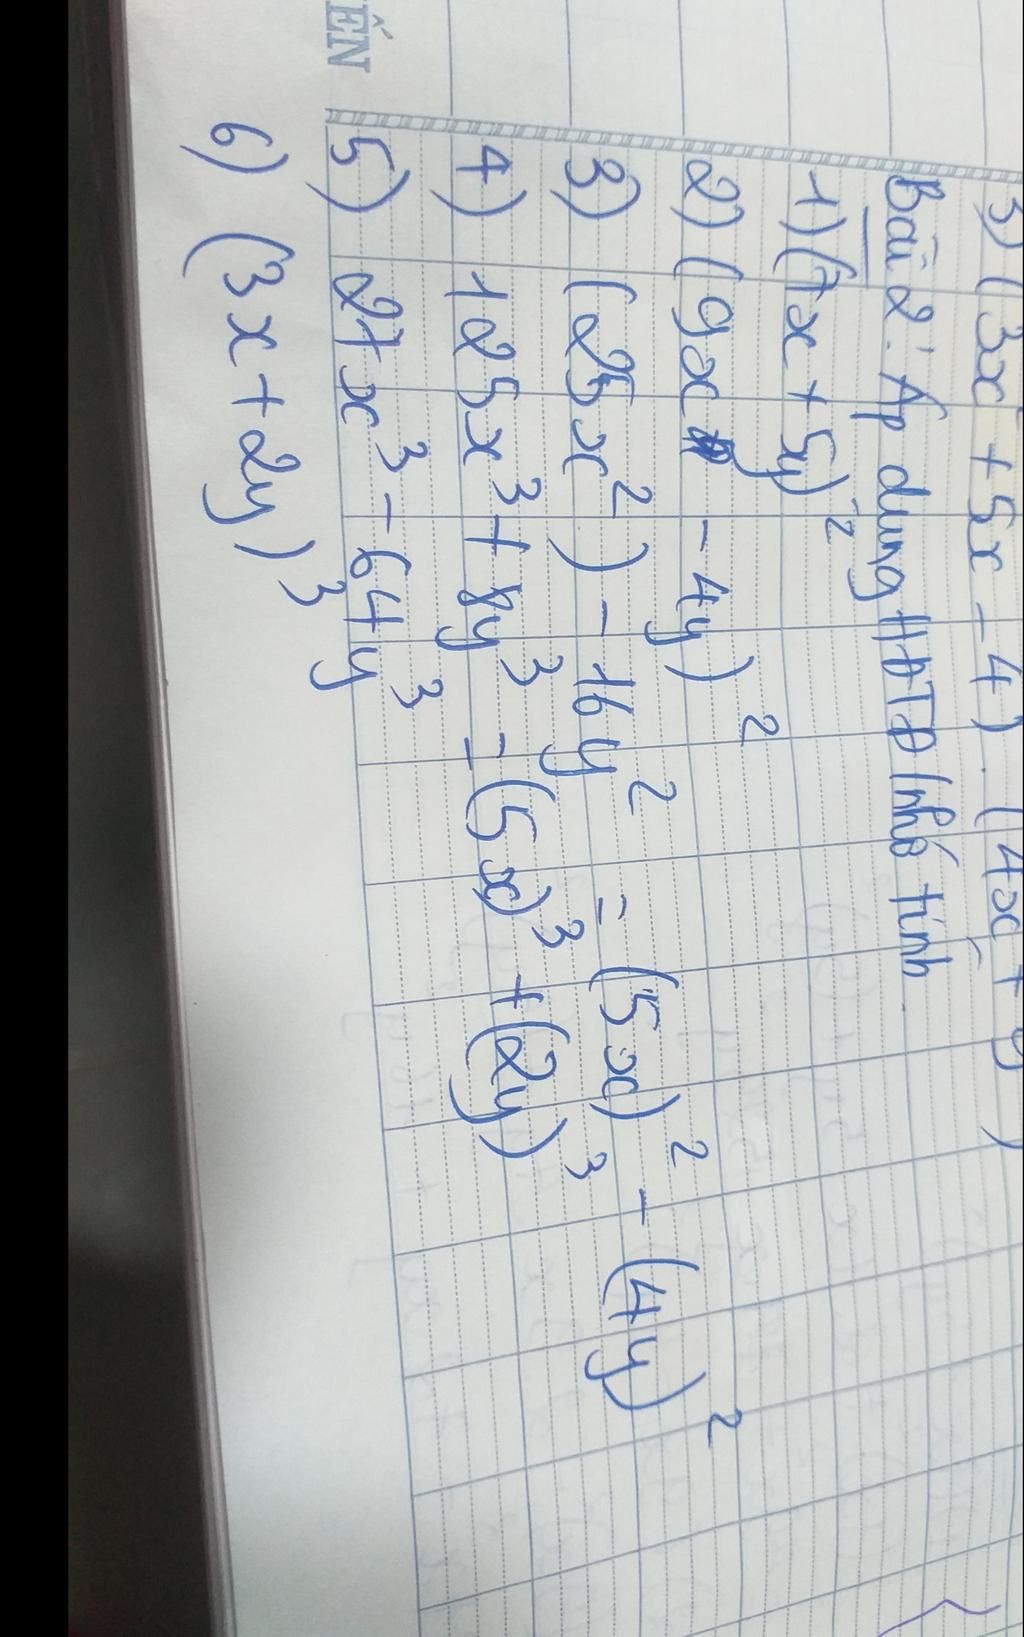 3) (3x² + 5x - 4) . (4x + y)
Bài 2: Áp dụng HĐTĐ nhớ tính
1) (7x + 5y)²
2) (9x - 4y)²
3) (25x²) - 16y² = (5x)² - (4y)²
4) 125x³ + 8y³ = (5x)³ + (2y)³
5) 27x³ - 64y³
6) (3x + 2y)³
ẾN